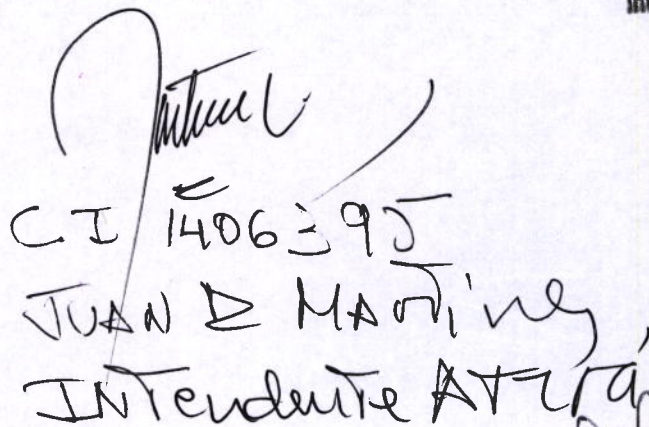 CI 1406395
JUAN D MARTINEZ
INTendente